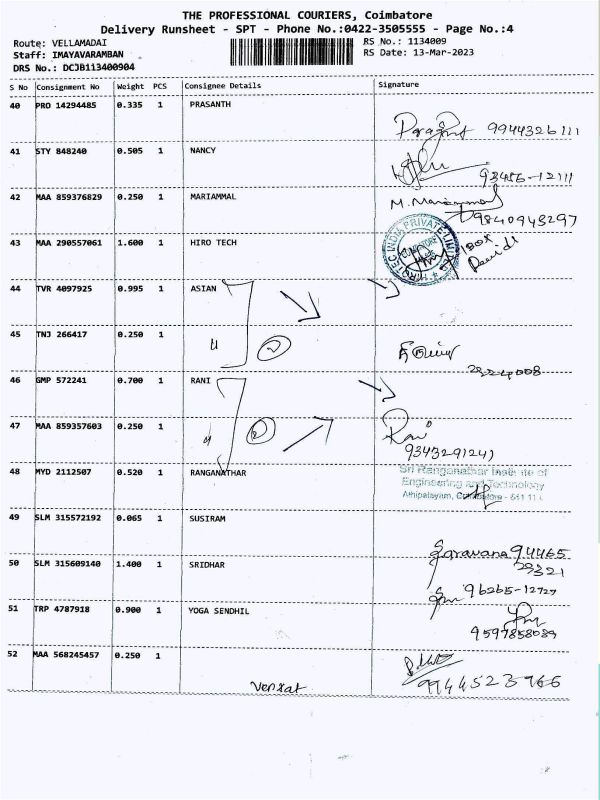 THE PROFESSIONAL COURIERS, Coimbatore
Delivery Runsheet - SPT - Phone No.:0422-3505555 - Page No.:4
Route: VELLAMADAI
Staff: IMAYAVARAMBAN
DRS No.: DCJB113400904
RS No.: 1134009
RS Date: 13-Mar-2023
S No Consignment No Weight PCS Consignee Details Signature
40 PRO 14294485 0.335 1 PRASANTH
9944326111
41 STY 848240 0.505 1 NANCY
93456-12111
42 MAA 859376829 0.250 1 MARIAMMAL M. Mariammal
9840943297
43 MAA 290557061 1.600 1 HIRO TECH
HIROTEC INDIA PRIVATE LIMITED
44 TVR 4097925 0.995 1 ASIAN
45 TNJ 266417 0.250 1
46 GMP 572241 0.700 1 RANI
47 MAA 859357603 0.250 1
Rani
9343291241
48 MYD 2112507 0.520 1 RANGANATHAR
Sri Ranganathar Institute of
Engineering and Technology
Athipalayam, Coimbatore - 641 11
49 SLM 315572192 0.065 1 SUSIRAM
Saravana 94465
29321
50 SLM 315609140 1.400 1 SRIDHAR
96265-12727
51 TRP 4787918 0.900 1 YOGA SENDHIL
9597858089
52 MAA 568245457 0.250 1
Venkat
9944523966